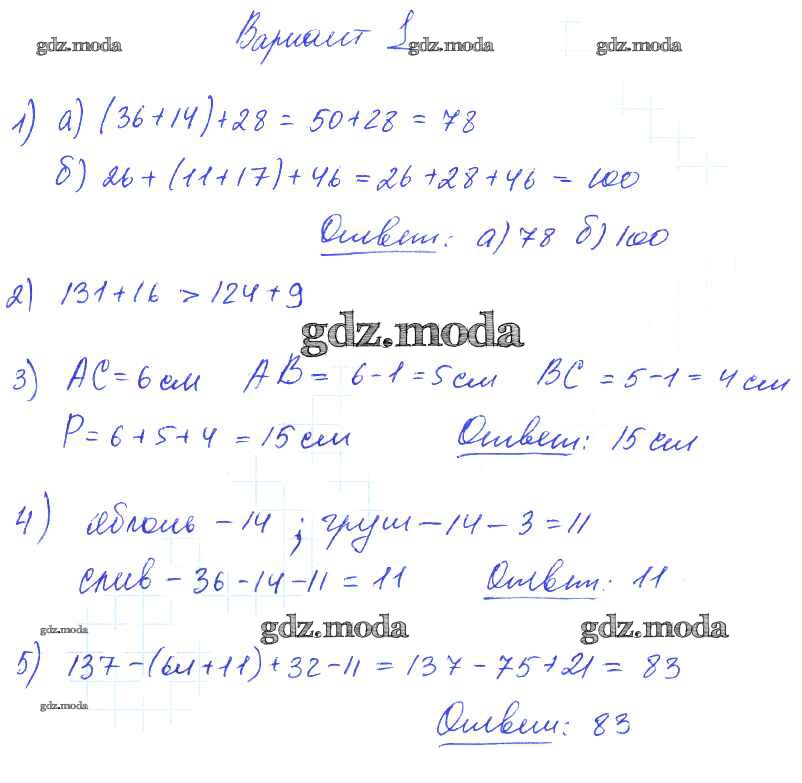 Вариант 1
gdz.moda gdz.moda gdz.moda
1) а) (36+14)+28 = 50+28 = 78
б) 26+(11+17)+46 = 26+28+46 = 100
Ответ: а) 78 б) 100
2) 131+16 > 124+9
gdz.moda
3) AC = 6 см AB = 6-1 = 5 см BC = 5-1 = 4 см
P = 6+5+4 = 15 см Ответ: 15 см
4) яблонь - 14 ; груш - 14 - 3 = 11
слив - 36 - 14 - 11 = 11 Ответ: 11
gdz.moda gdz.moda gdz.moda
5) 137 - (64+11) + 32 - 11 = 137 - 75 + 21 = 83
gdz.moda
Ответ: 83